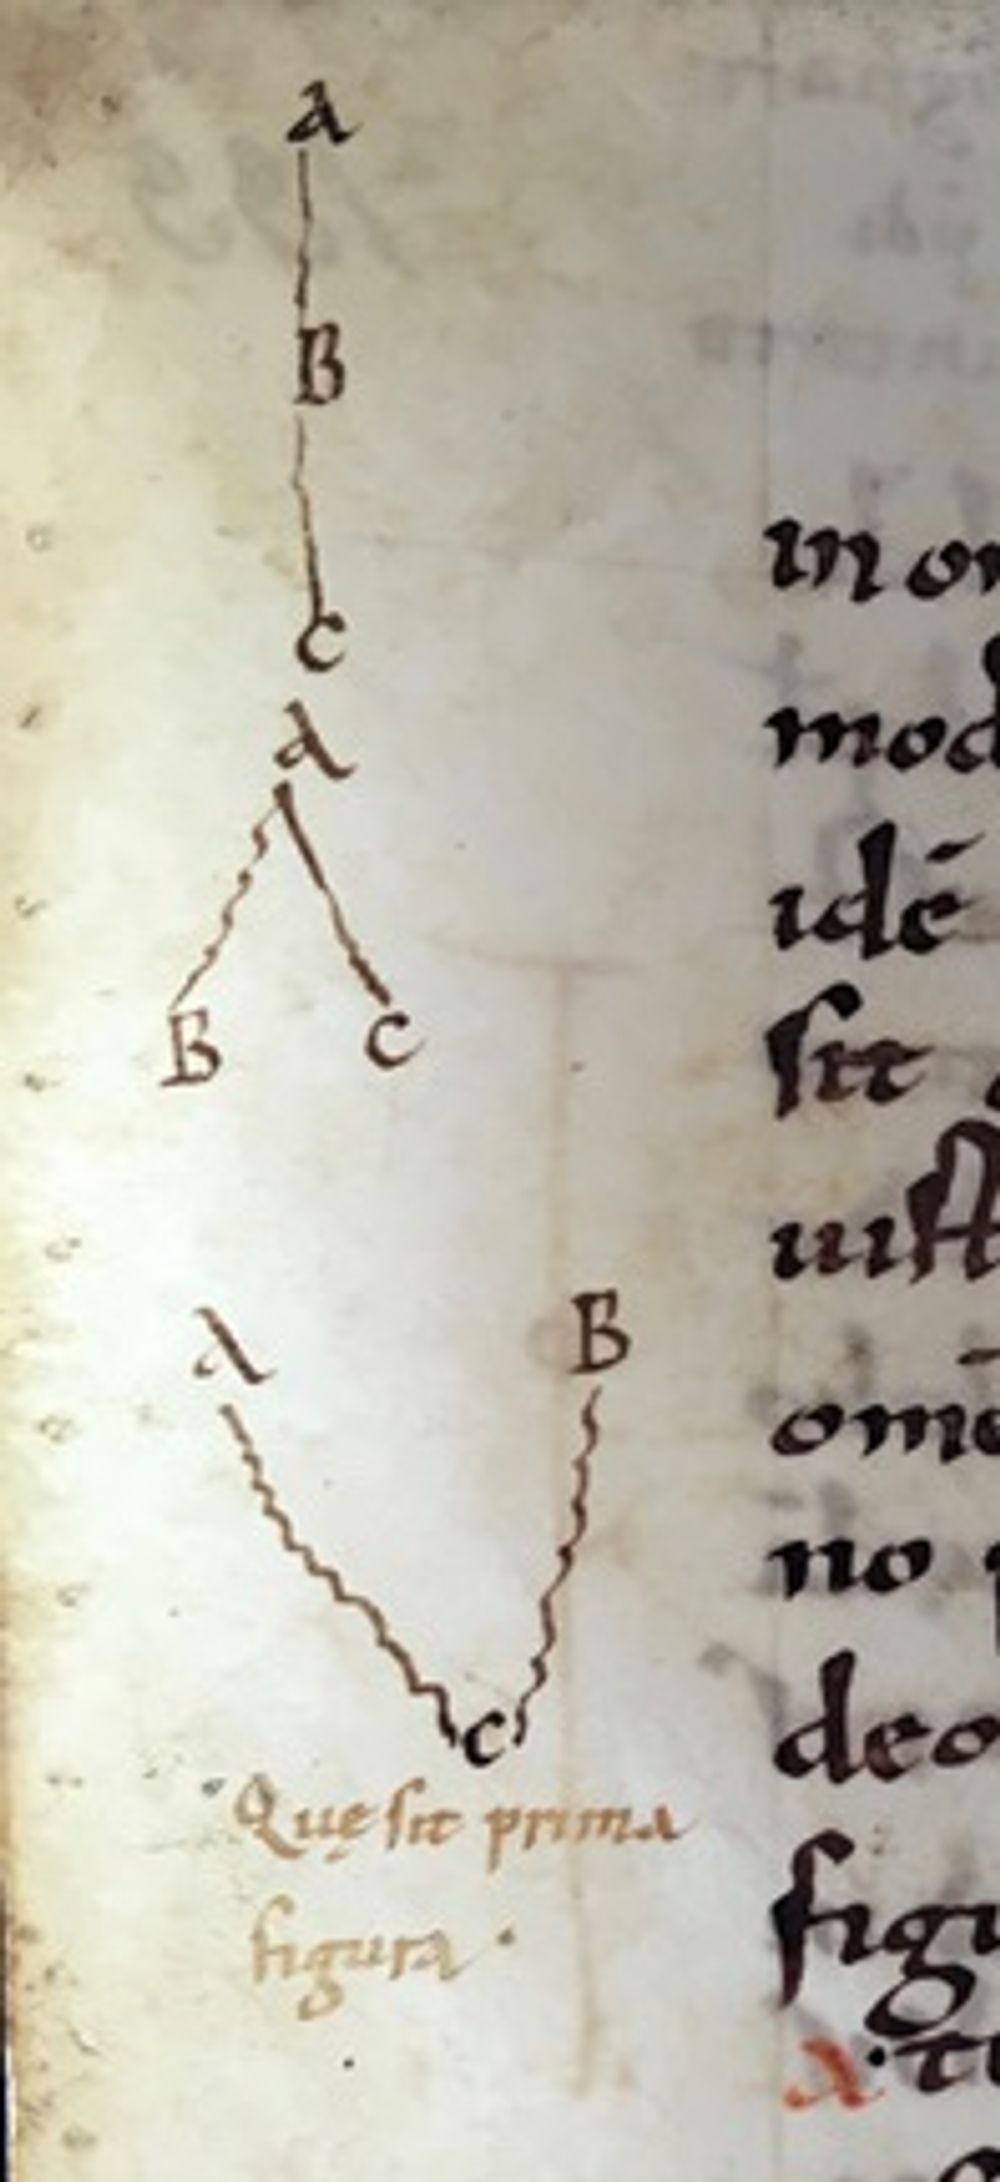 a
B
C
a
B C
A B
C
Quę sit prima
figura ·
in or
mod
idē
sit
uist
omē
no
deo
figu
A · t